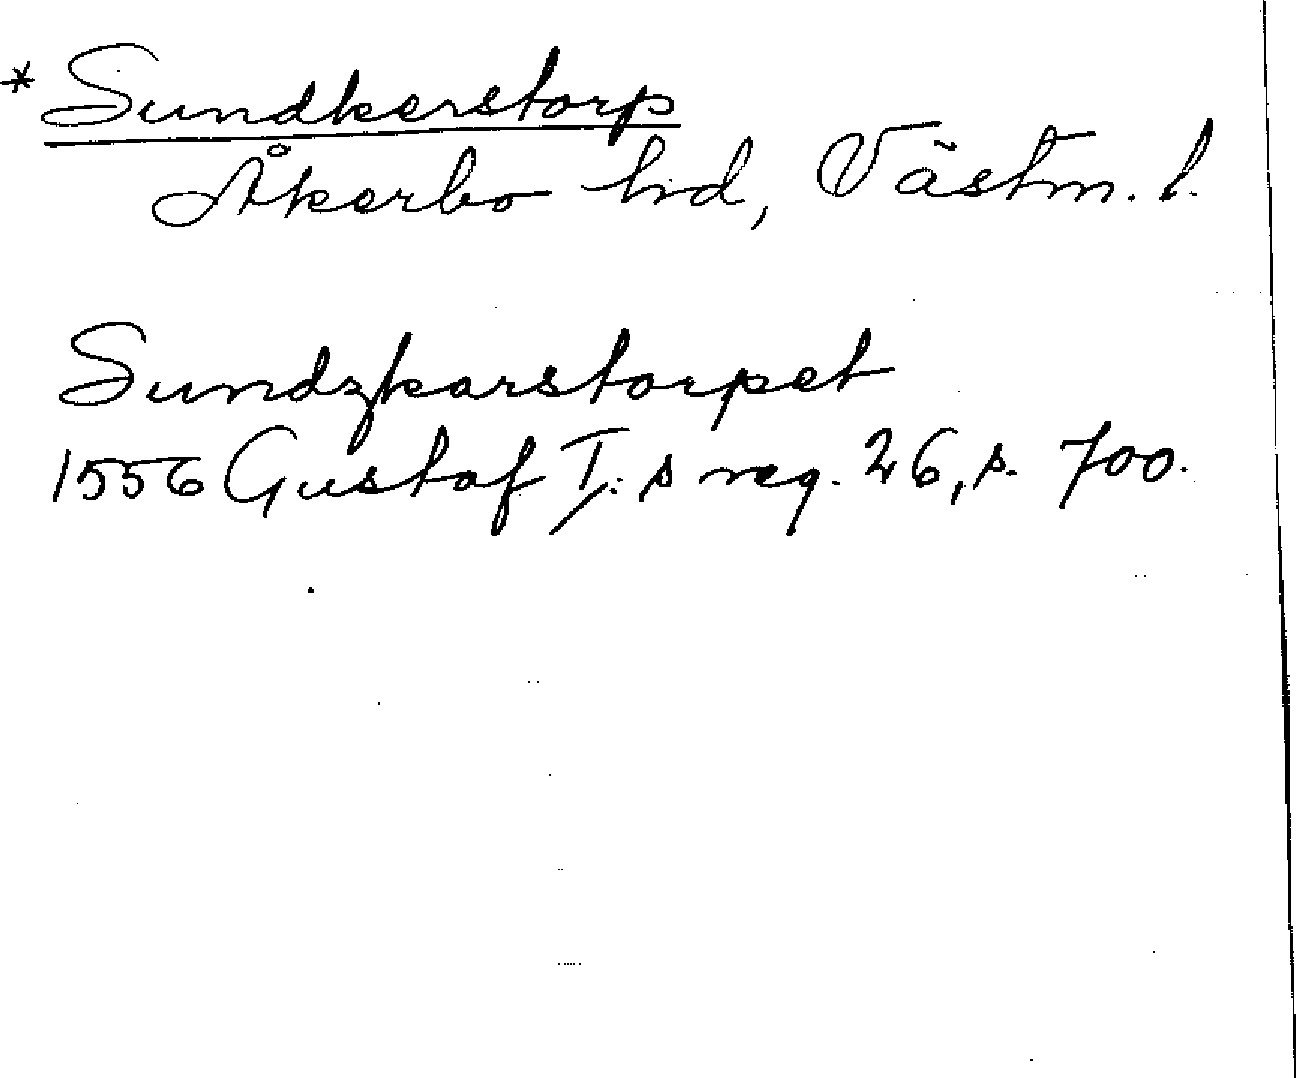 * Sundkerstorp
Åkerbo hd, Västm. l.
Sundzkarstorpet
1556 Gustaf I:s reg. 26, s. 700.